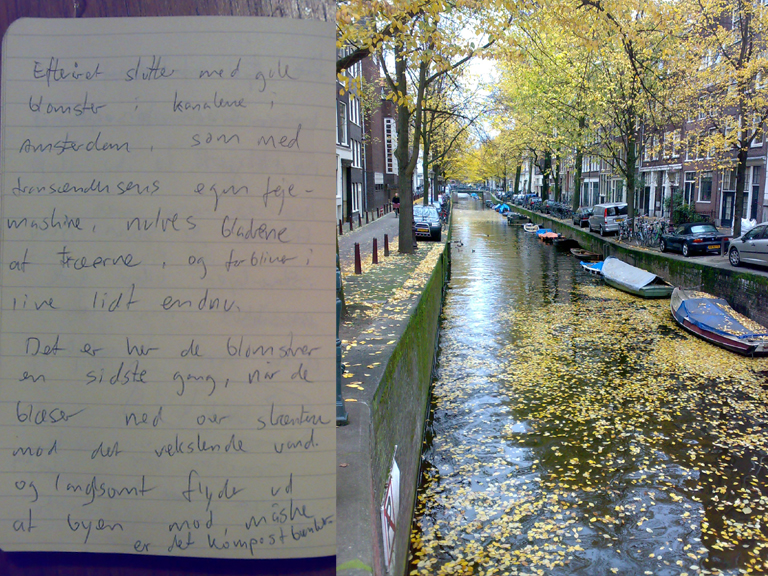 Efteråret slutter med gule
blomster i kanalerne i
Amsterdam, som med
transcendensens egen feje-
maskine, nulves bladrene
af træerne, og forbliver i
live lidt endnu.
Det er her de blomstrer
en sidste gang, når de
blæser ned over skrænten
mod det vekslende vand
og langsomt flyder ud
af byen mod, måske
er det kompostbunker